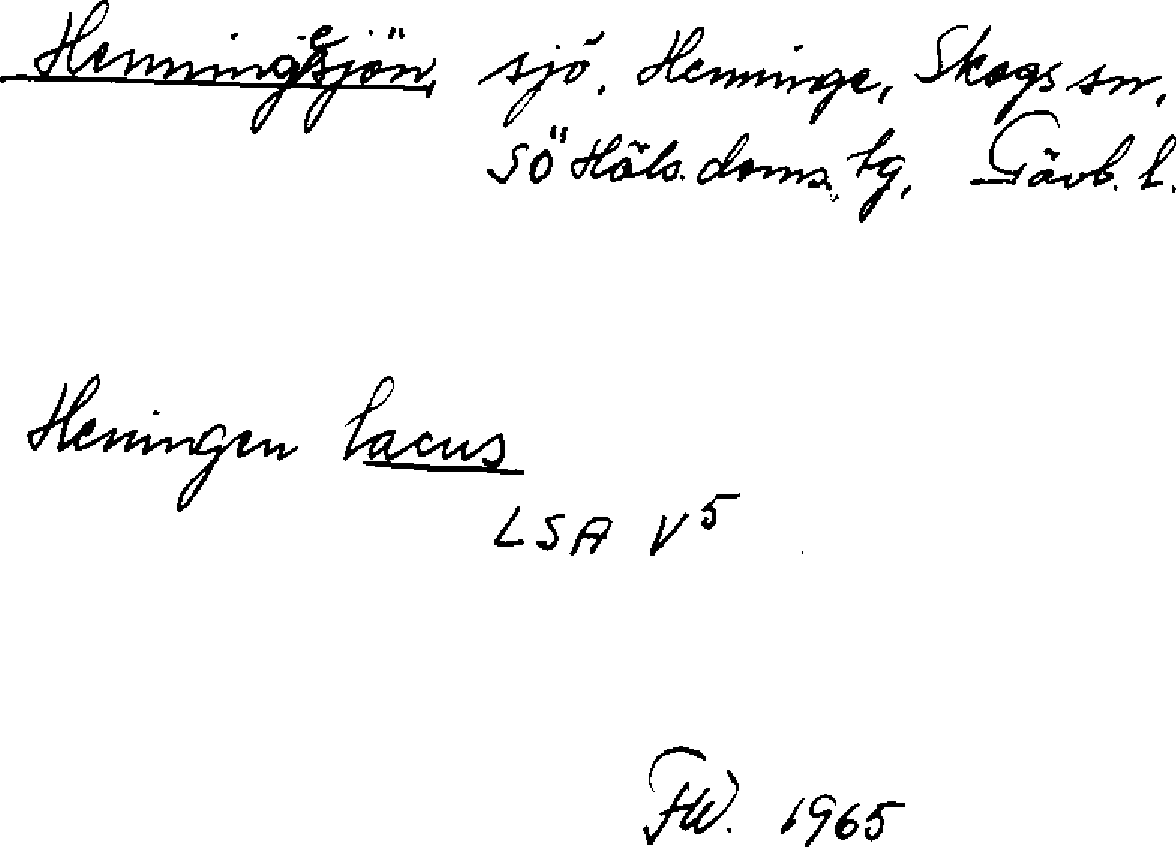 Henningesjön, sjö, Henninge, Skogs sn,
SÖ Häls. doms. tg, Gävb. l.
Henningen lacus
LSA V⁵
FW. 1965